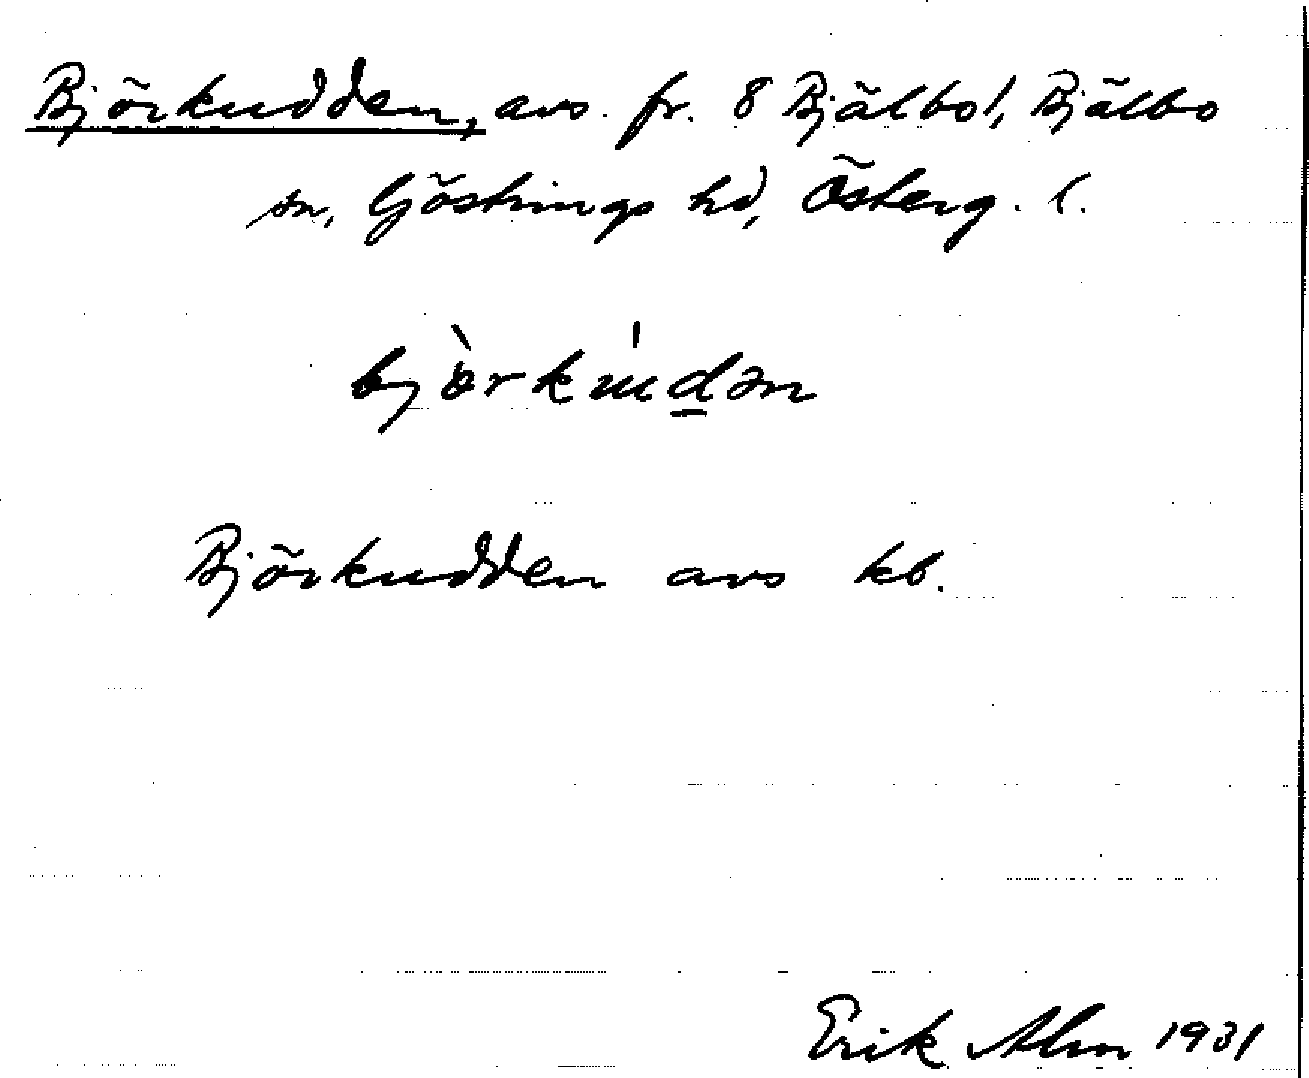 Björkudden, avs. fr. 8 Bjälbo 1, Bjälbo
sn, Göstrings hd, Österg. l.
bjò̀rkúdən
Björkudden avs kb.
Erik Alm 1931